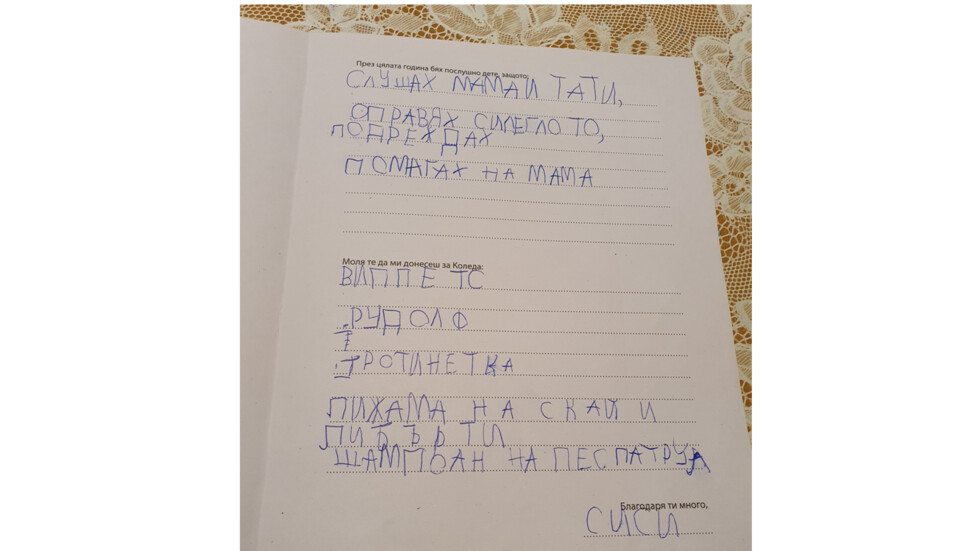 През цялата година бях послушно дете, защото:
СЛУШАХ МАМА И ТАТИ,
ОПРАВЯХ СИ ЛЕГЛО ТО,
ПОДРЕЖДАХ
ПОМАГАХ НА МАМА
Моля те да ми донесеш за Коледа:
ВИППЕТС
РУДОЛФ
Т
ТРОТИНЕТКА
ПИЖАМА НА СКАЙ И
ЛИБЪРТИ
ШАМПОАН НА ПЕСПАТРУЛ
Благодаря ти много,
СИСИ